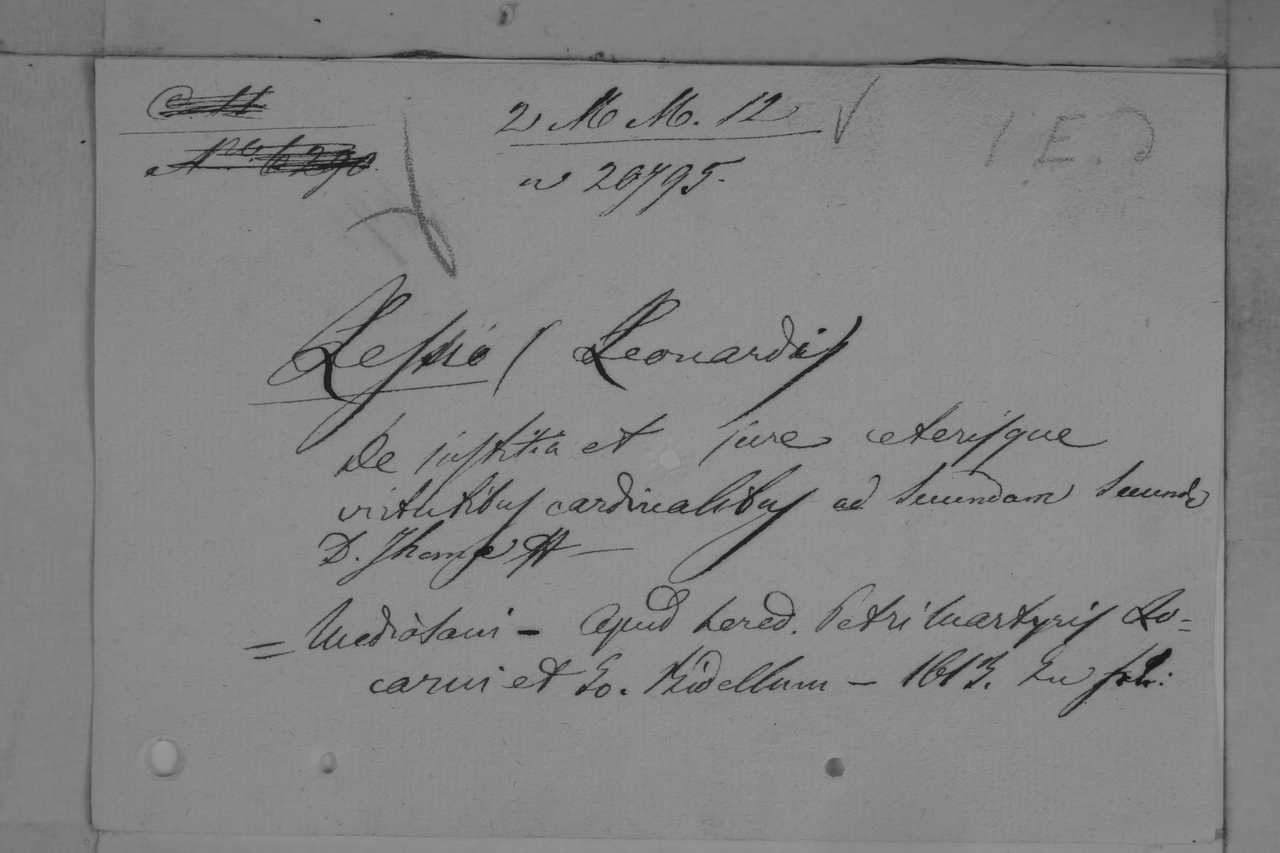 2 M M. 12 √ 1 E. D
n 20795.
Lessio (Leonardi)
De justitia et jure ceterisque
virtutibus cardinalibus ad secundam secundæ
D. Thomæ &&
= Mediolani - Apud hered. Petri Martyris Lo=
carni et Jo. Bidellum - 1613. In fol: